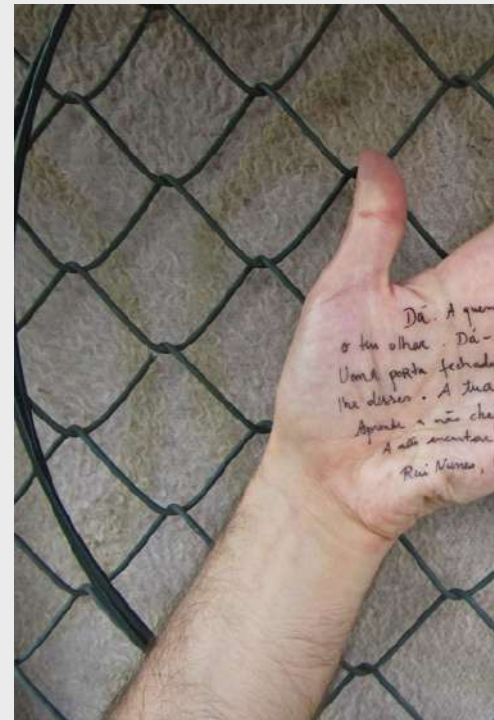 Dá. A quem
o teu olhar. Dá-
Uma porta fechada
lhe disser. A tua
Aprende a não che
A não encontrar
Rui Nunes,